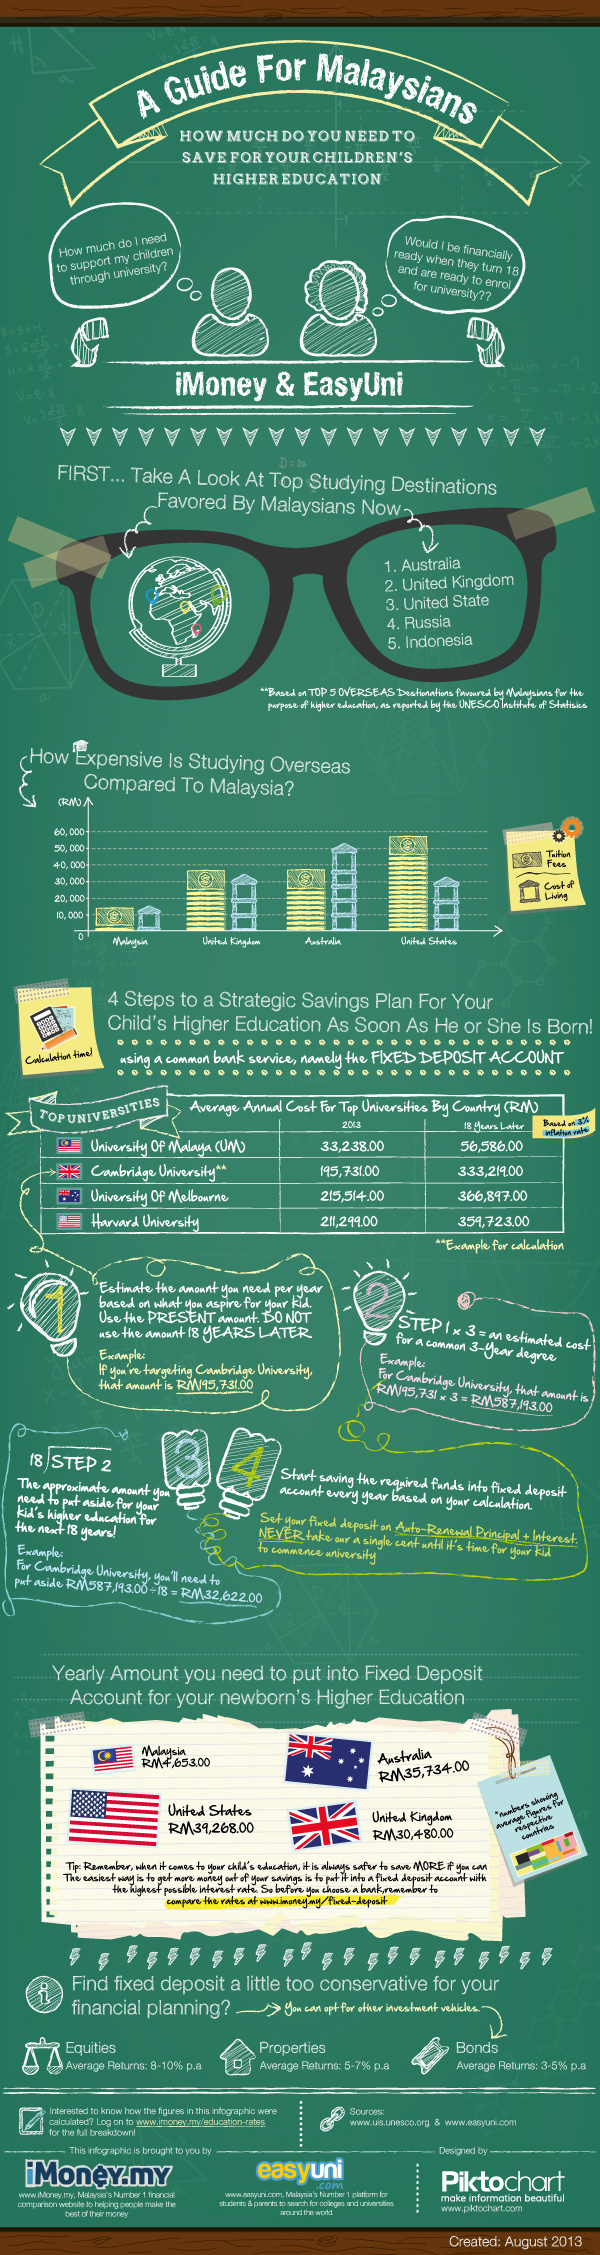 A Guide For Malaysians
HOW MUCH DO YOU NEED TO
SAVE FOR YOUR CHILDREN'S
HIGHER EDUCATION
How much do I need
to support my children
through university?
Would I be financially
ready when they turn 18
and are ready to enrol
for university??
iMoney & EasyUni
FIRST... Take A Look At Top Studying Destinations
Favored By Malaysians Now
1. Australia
2. United Kingdom
3. United State
4. Russia
5. Indonesia
**Based on TOP 5 OVERSEAS Destionations favoured by Malaysians for the
purpose of higher education, as reported by the UNESCO Institute of Statisics
How Expensive Is Studying Overseas
Compared To Malaysia?
(RM)
60,000
50,000
40,000
30,000
20,000
10,000
0
Malaysia
United Kingdom
Australia
United States
Tuition
Fees
Cost of
Living
Calculation time!
4 Steps to a Strategic Savings Plan For Your
Child's Higher Education As Soon As He or She Is Born!
using a common bank service, namely the FIXED DEPOSIT ACCOUNT
TOP UNIVERSITIES
Average Annual Cost For Top Universities By Country (RM)
2013 18 Years Later
Based on 3%
inflation rate
University Of Malaya (UM) 33,238.00 56,586.00
Cambridge University** 195,731.00 333,219.00
University Of Melbourne 215,514.00 366,897.00
Harvard University 211,299.00 359,723.00
**Example for calculation
1
Estimate the amount you need per year
based on what you aspire for your kid.
Use the PRESENT amount. DO NOT
use the amount 18 YEARS LATER
Example:
If you're targeting Cambridge University,
that amount is RM195,731.00
2
STEP 1 x 3 = an estimated cost
for a common 3-year degree
Example:
For Cambridge University, that amount is
RM195,731 x 3 = RM587,193.00
18 STEP 2
The approximate amount you
need to put aside for your
kid's higher education for
the next 18 years!
Example:
For Cambridge University, you'll need to
put aside RM587,193.00÷18 = RM32,622.00
3
4
Start saving the required funds into fixed deposit
account every year based on your calculation.
Set your fixed deposit on Auto-Renewal Principal + Interest.
NEVER take our a single cent until it's time for your kid
to commence university
Yearly Amount you need to put into Fixed Deposit
Account for your newborn's Higher Education
Malaysia
RM4,653.00
Australia
RM35,734.00
United States
RM39,268.00
United Kingdom
RM30,480.00
*numbers showing
average figures for
respective
countries
Tip: Remember, when it comes to your child's education, it is always safer to save MORE if you can
The easiest way is to get more money out of your savings is to put it into a fixed deposit account with
the highest possible interest rate. So before you choose a bank,remember to
compare the rates at www.imoney.my/fixed-deposit
Find fixed deposit a little too conservative for your
financial planning?
You can opt for other investment vehicles.
Equities
Average Returns: 8-10% p.a
Properties
Average Returns: 5-7% p.a
Bonds
Average Returns: 3-5% p.a
Interested to know how the figures in this infographic were
calculated? Log on to www.imoney.my/education-rates
for the full breakdown!
Sources:
www.uis.unesco.org & www.easyuni.com
This infographic is brought to you by
Designed by
iMoney.my
www.iMoney.my, Malaysia's Number 1 financial
comparison website to helping people make the
best of their money
easyuni
.com
www.easyuni.com, Malaysia's Number 1 platform for
students & parents to search for colleges and universities
around the world
Piktochart
make information beautiful
www.piktochart.com
Created: August 2013